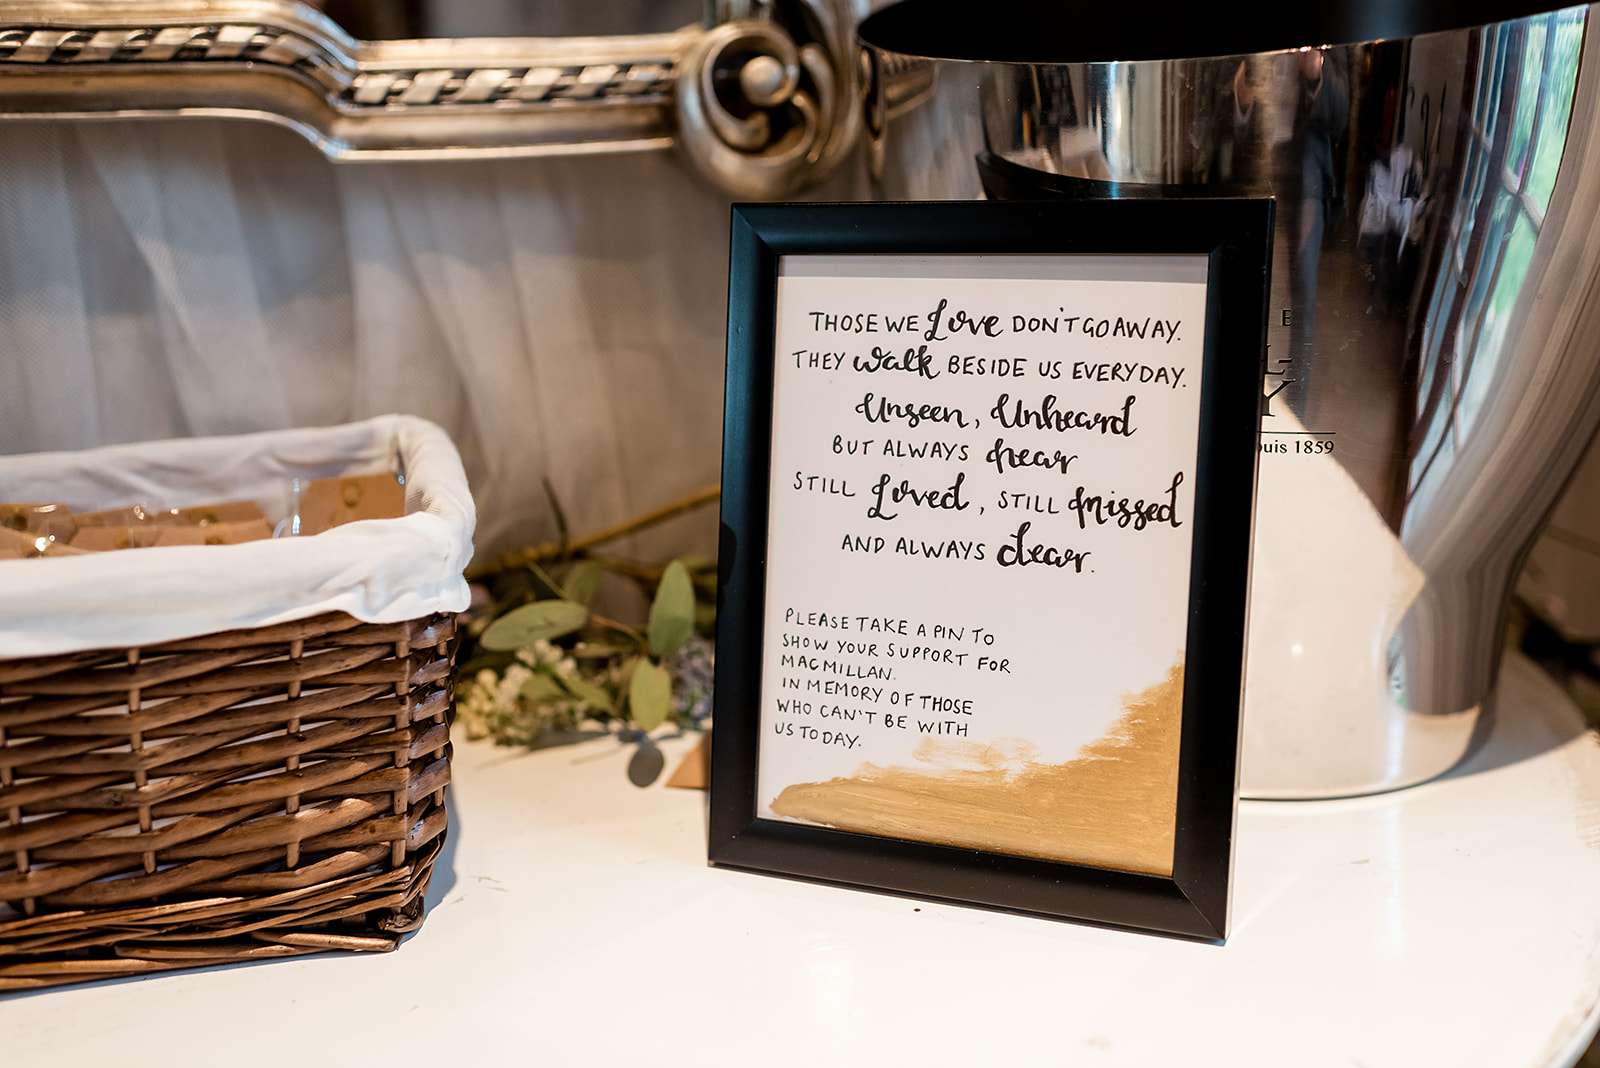 THOSE WE Love DON'T GO AWAY.
THEY walk BESIDE US EVERYDAY.
Unseen, Unheard
BUT ALWAYS near
STILL Loved, STILL Missed
AND ALWAYS dear.
PLEASE TAKE A PIN TO
SHOW YOUR SUPPORT FOR
MACMILLAN.
IN MEMORY OF THOSE
WHO CAN'T BE WITH
US TODAY.
puis 1859